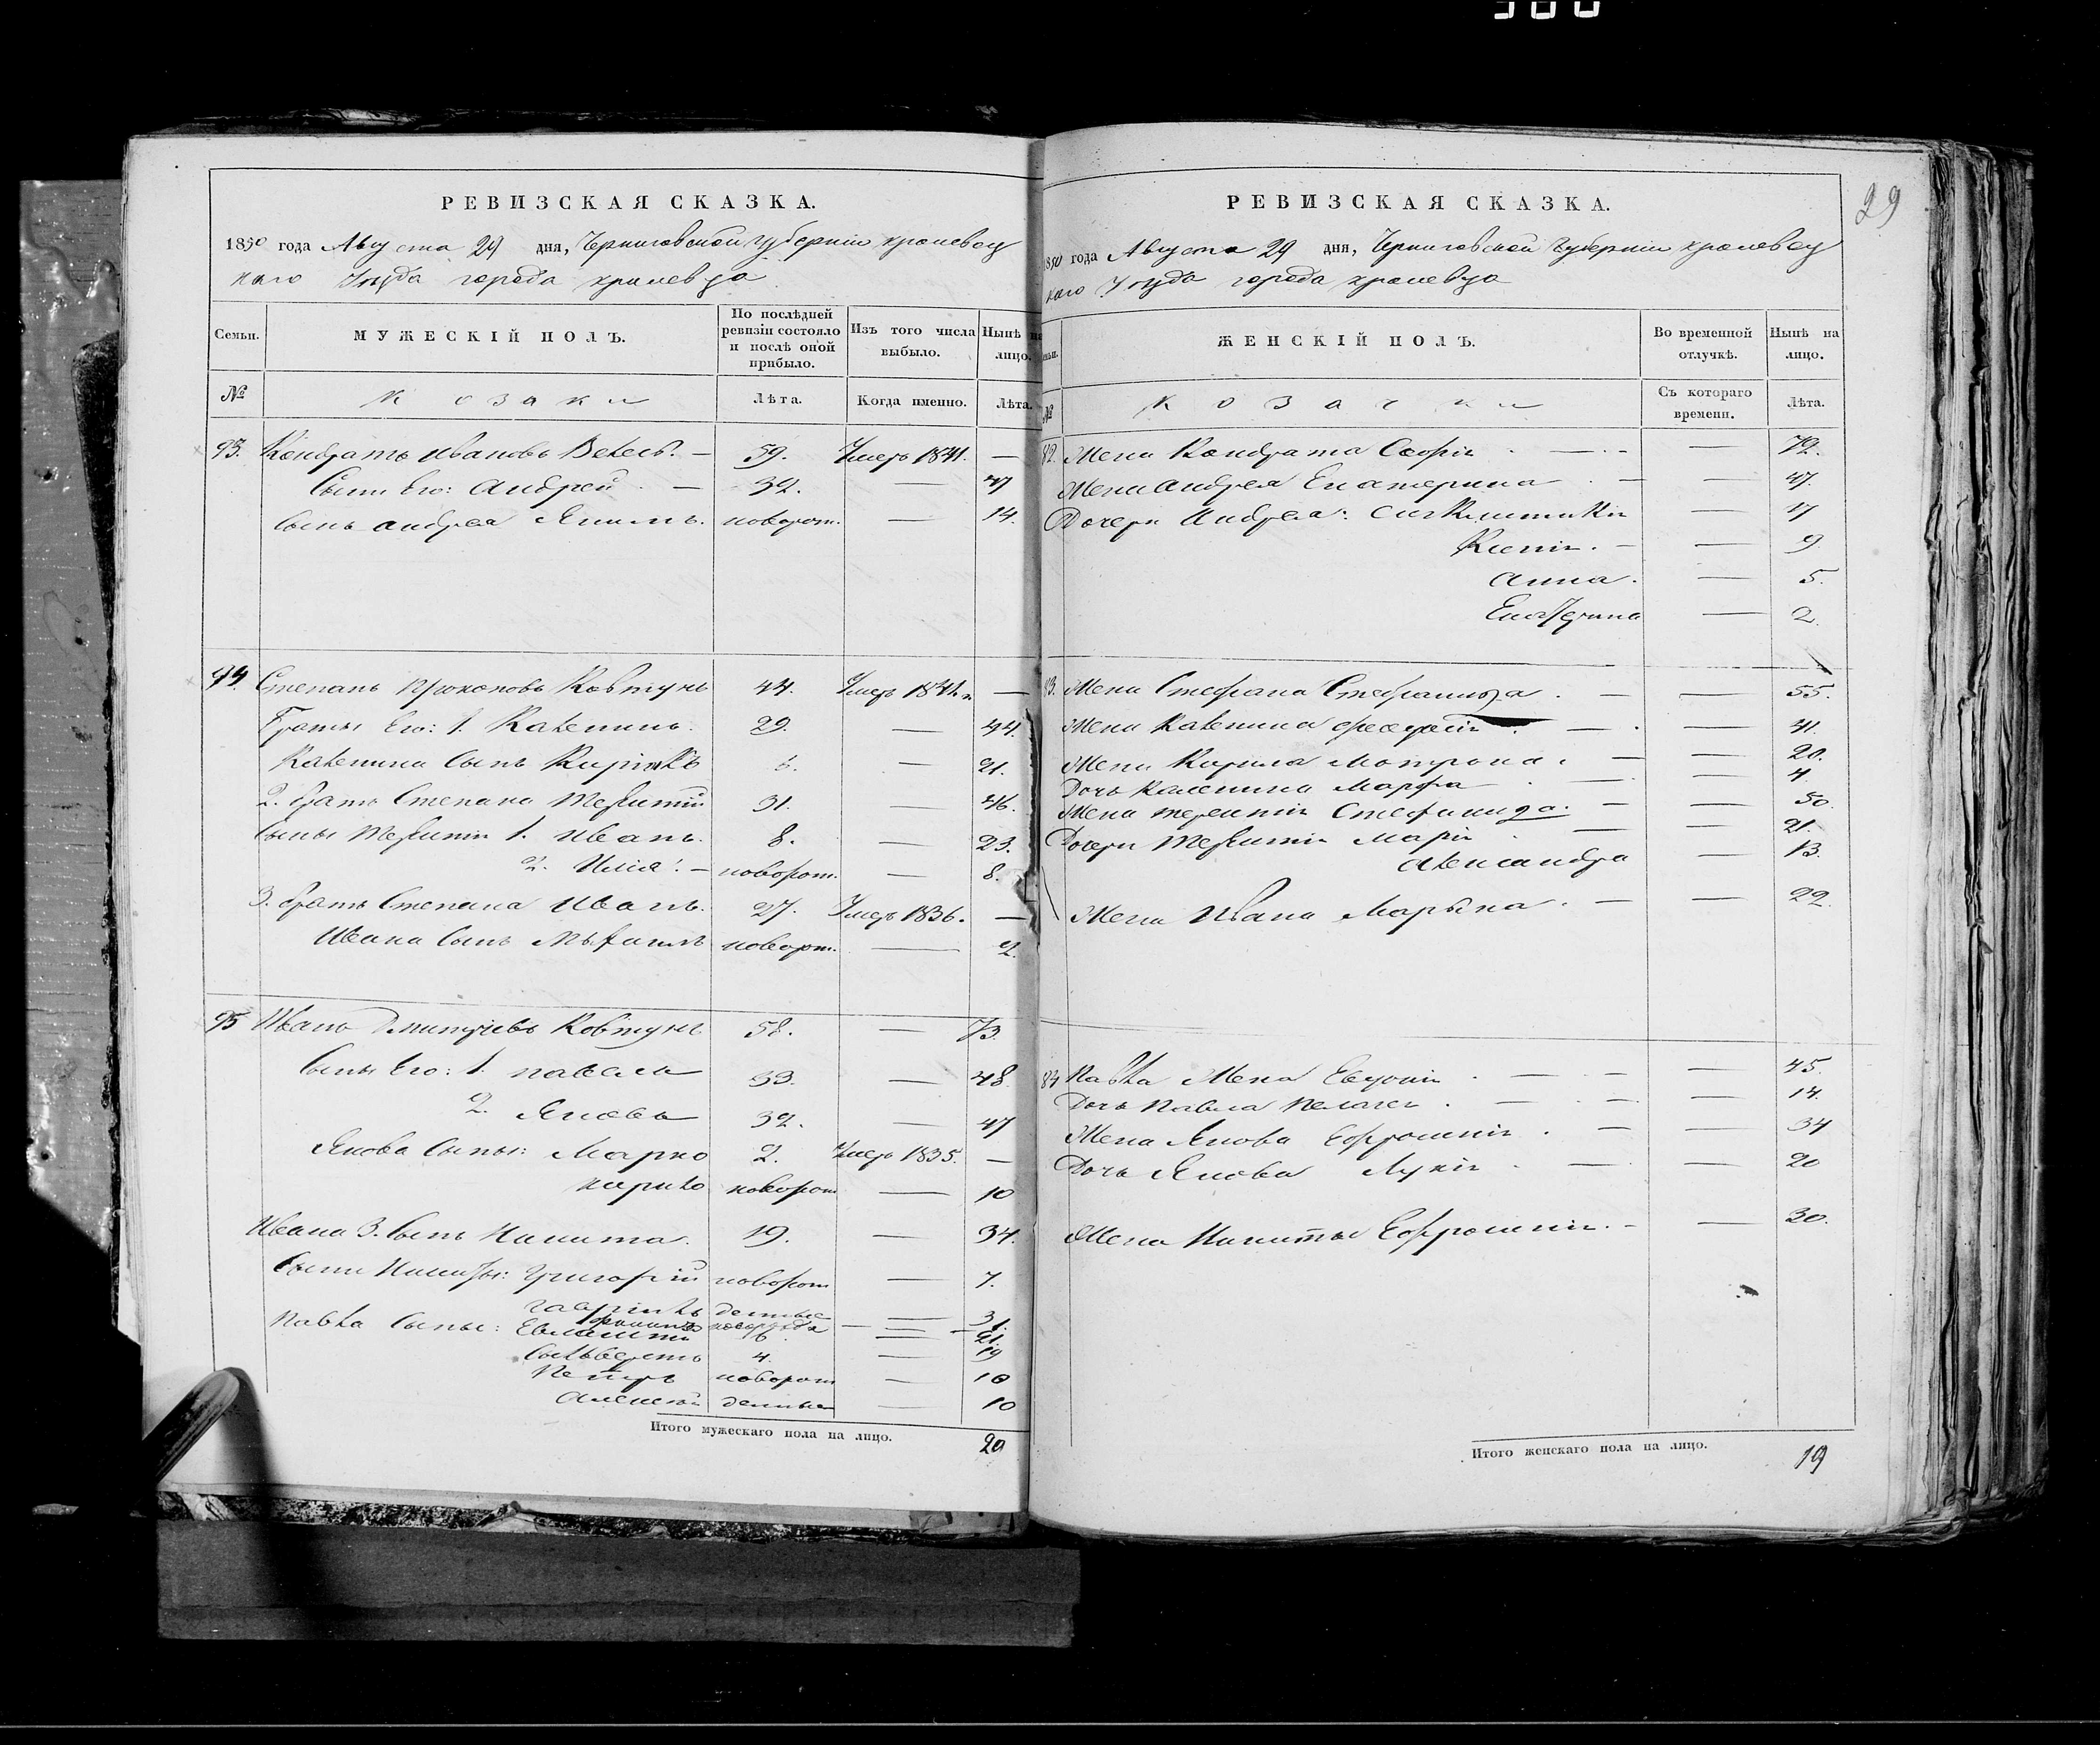 РЕВИЗСКАЯ СКАЗКА.
1850 года Августа 29 дня, Черниговской губерніи кролевец
каго уезда города кролевца
Семьи. МУЖЕСКІЙ ПОЛЪ. По послѣдней ревизіи состояло и послѣ оной прибыло. Изъ того числа выбыло. Нынѣ на лицо.
№ Козаки Лѣта. Когда именно. Лѣта.
93. Кондратъ Ивановъ 59. Умеръ 1841. —
Сынъ Его: Андрей — 32. — 47
Сынъ Андрея Якимъ. новорож. — 14.
94. Степанъ Прокоповъ Ковтунъ 44. Умеръ —
Браты Его: 1. Каленикъ. 29. — 44.
Каленика Сынъ 6. — 21.
2. братъ Степана Терентій 31. — 46.
Сыны Терентія 1. Иванъ. 8. — 23.
2. Илія. — новорож. — 8.
3. братъ Степана Иванъ. 27. Умеръ 1836. —
Ивана Сынъ новорж. — 2.
95 Иванъ Дмитріевъ Ковтунъ 58. — 73
Сыны Его: 1. Павелъ 33. — 48.
2. Яковъ 32. — 47
Якова Сыны: Марко 2. Умеръ 1835. —
новорож — 10
Ивана 3. Сынъ Никита. 19. — 34.
Сынъ Никиты: Григорій новорож — 7.
Павла Сыны:
4. — 19
Петръ новорож — 10
Алексей — 10
Итого мужескаго пола на лицо. 20
39
РЕВИЗСКАЯ СКАЗКА.
1850 года Августа 29 дня, Черниговской Губерніи кролевец
каго Уезда города кролевца
ЖЕНСКІЙ ПОЛЪ. Во временной отлучкѣ. Нынѣ на лицо.
№ Козачки Съ котораго времени. Лѣта.
Жена Кондрата Софія — — 72.
Жена Андрея Екатерина — — 47.
Дочери Андрея: — 17
Ксенія. — — 9
Анна. — 5.
Екатерина — 2.
Жена Стефана Стефанида — — 55.
Жена Каленика — — 41.
Жена Кирила Матрона. — — 20.
Дочь Каленика Марфа — — 4.
Жена Терентія Стефанида. — — 50.
Дочери Терентія Марія — — 21.
Александра — 13.
Жена Ивана Марына. — — 22.
84 Павла Жена Евдокія — — 45.
Дочь Павла Пелагея — — 14.
Жена Якова Ефросинія — — 34
Дочь Якова Лукія — — 20
Жена Никиты Ефросинія. — — 30.
Итого женскаго пола на лицо. 19